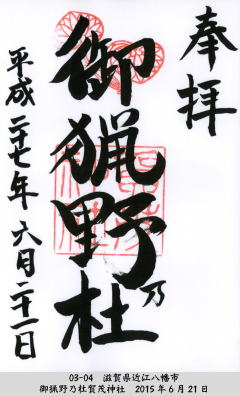 奉拝
御猟野乃杜
平成二十七年六月二十一日
03-04 滋賀県近江八幡市
御猟野乃杜賀茂神社 2015年6月21日